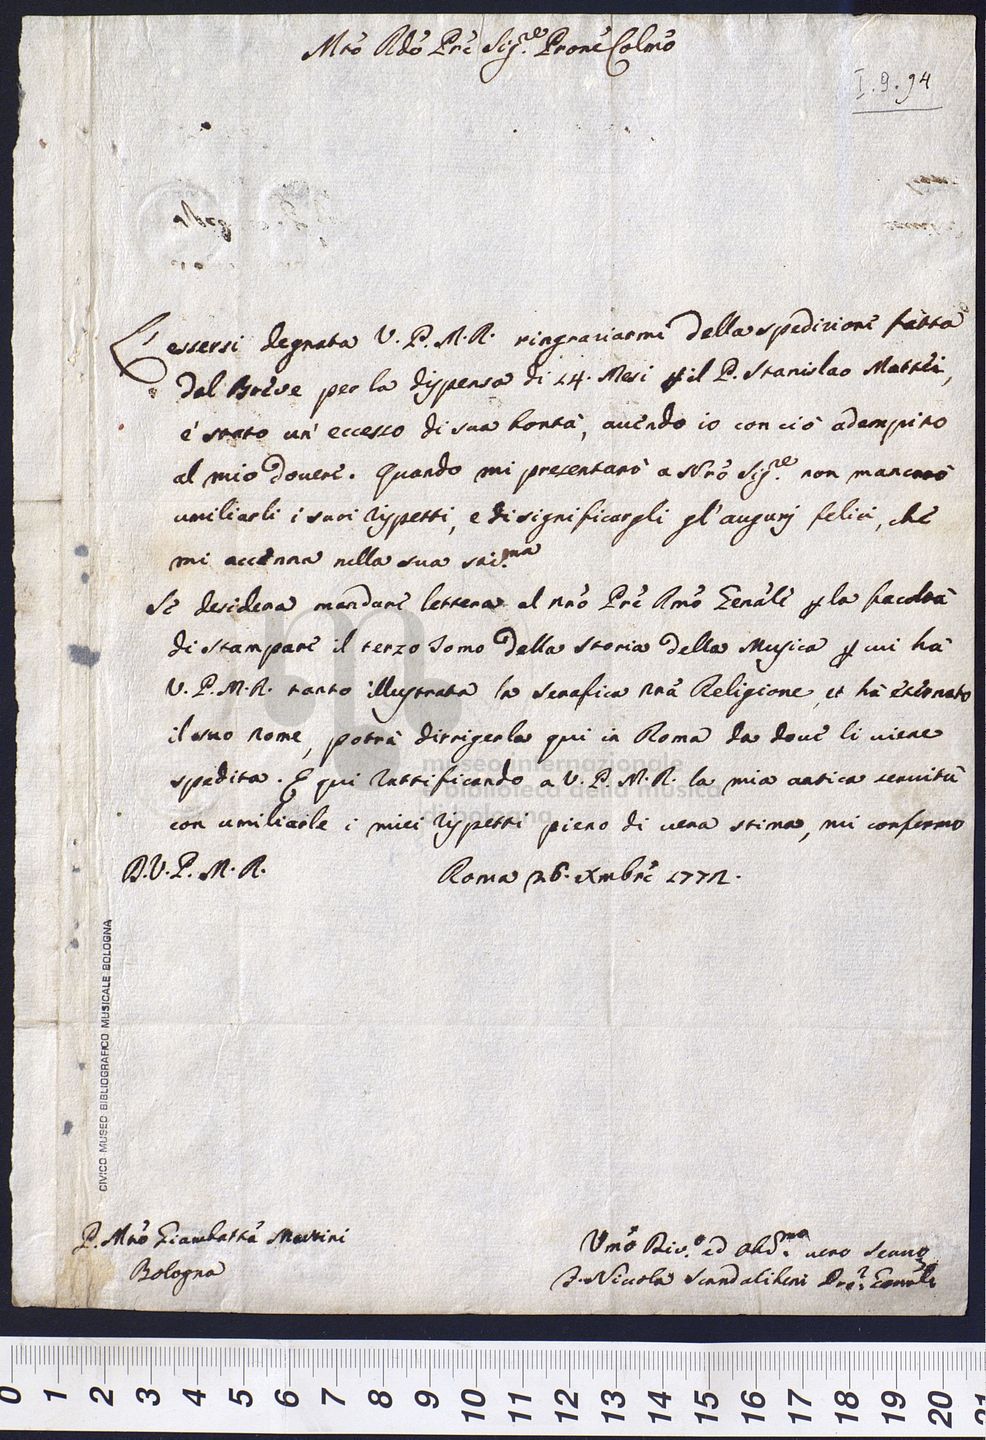 Mtõ Rdõ Prẽ Sig.re Pronẽ Colmõ
I.9.94
L'essersi degnata V. P. M. R. ringraziarmi della spedizione fatta
del Breve per la dispensa di 14. Mesi p il P. Stanislao Mattei,
é stato un' eccesso di sua bontà, avendo io con ciò adempito
al mio dovere. Quando mi presentarò a Nrõ Sig.re non mancarò
umiliarli i suoi rispetti, e di significargli gl'augurj felici, che
mi accenna nella sua
Se desidera mandare lettera al nrõ Prẽ Rmõ Genãle p la facoltà
di stampare il terzo Tomo della Storia della Musica p cui hà
V. P. M. R. tanto illustrata la Serafica nrã Religione, et hà eternato
il suo nome, potrà dirrigerla qui in Roma da dove li viene
spedita. E qui rattificando a V. P. M. R. la mia antica servitù
con umiliarle i miei rispetti pieno di vera stima, mi confermo
D. V. P. M. R.
Roma 26. Xmbrẽ 1772.
P. Mrõ Giambattã Martini
Bologna
Umõ Div.o ed Obb.mo vero Servo
F. Niccola
CIVICO MUSEO BIBLIOGRAFICO MUSICALE BOLOGNA
museo internazionale
e biblioteca della musica
di bologna
0 1 2 3 4 5 6 7 8 9 10 11 12 13 14 15 16 17 18 19 20 21